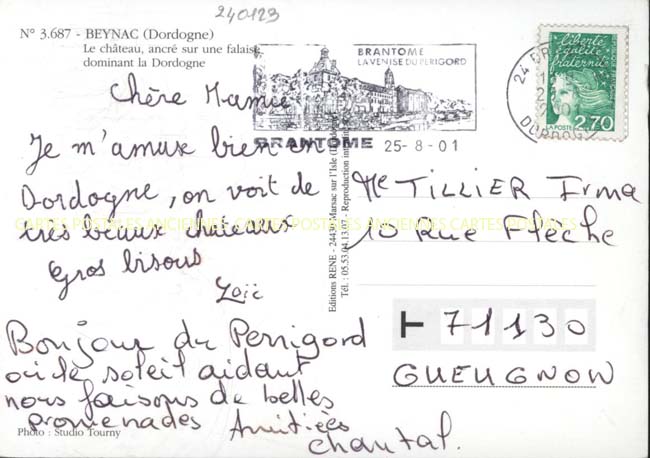 240123
N° 3.687 - BEYNAC (Dordogne)
Le château, ancré sur une falaise
dominant la Dordogne
BRANTOME
LA VENISE DU PERIGORD
BRANTOME 25-8-01
24
DORDOGNE
Liberté
égalité
fraternité
LA POSTE 2,70
Chère Mamie
Je m'amuse bien en
Dordogne, on voit de
très beaux châteaux
Gros bisous
Loïc
Bonjour du Perrigord
où le soleil aidant
nous faisons de belles
promenades Amitiés
Chantal.
Photo : Studio Tourny
Editions RENE - 24430 Marsac sur l'Isle
Tél. : 05.53.04.13.07 - Reproduction
Me TILLIER Irma
10 Rue Flèche
71130
GUEUGNON
CARTES POSTALES ANCIENNES CARTES POSTALES ANCIENNES CARTES POSTALES